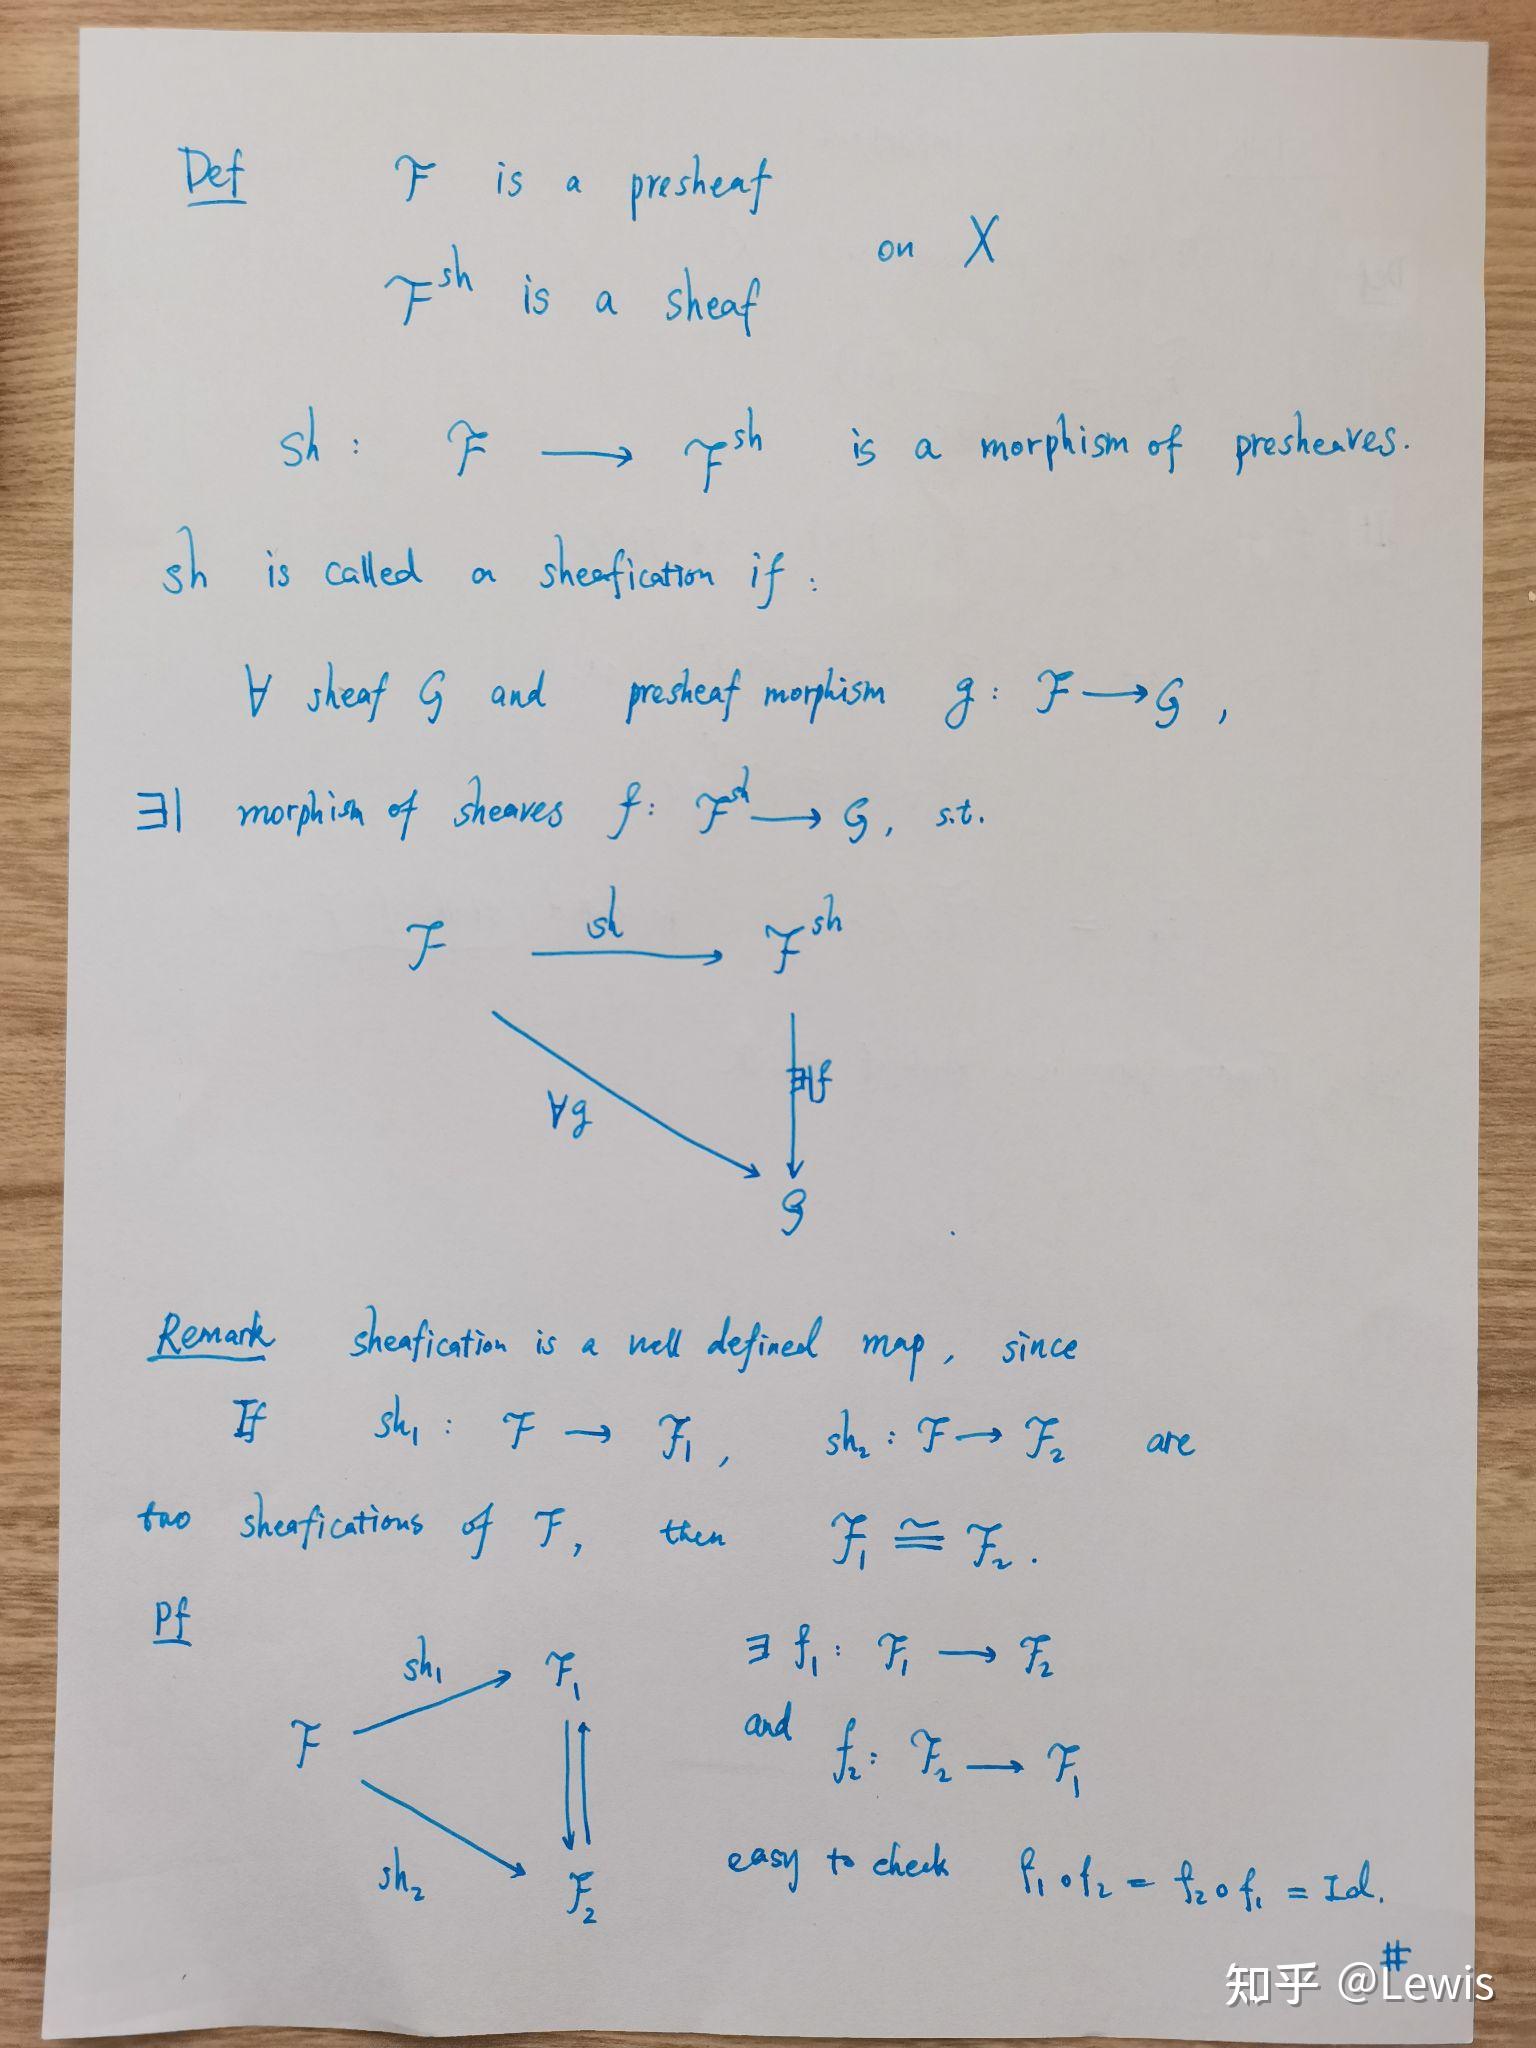 Def 𝓕 is a presheaf
on X
𝓕^sh is a sheaf
sh : 𝓕 ⟶ 𝓕^sh is a morphism of presheaves.
sh is called a sheafication if :
∀ sheaf 𝒢 and presheaf morphism g : 𝓕 ⟶ 𝒢 ,
∃| morphism of sheaves f : 𝓕^sh ⟶ 𝒢 , s.t.
𝓕 sh ⟶ 𝓕^sh
∀g ∃|f
𝒢
Remark sheafication is a well defined map , since
If sh₁ : 𝓕 → 𝓕₁ , sh₂ : 𝓕 → 𝓕₂ are
two sheafications of 𝓕 , then 𝓕₁ ≅ 𝓕₂ .
Pf
sh₁ 𝓕₁ ∃ f₁ : 𝓕₁ ⟶ 𝓕₂
𝓕 and f₂ : 𝓕₂ ⟶ 𝓕₁
sh₂ 𝓕₂ easy to check f₁∘f₂ = f₂∘f₁ = Id.
#
知乎 @Lewis